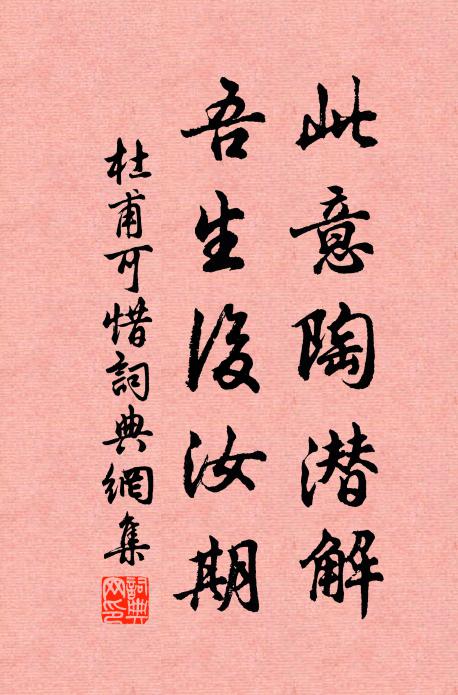 此意陶潜解
吾生後汝期
杜甫可惜詞典網集
詞典網印